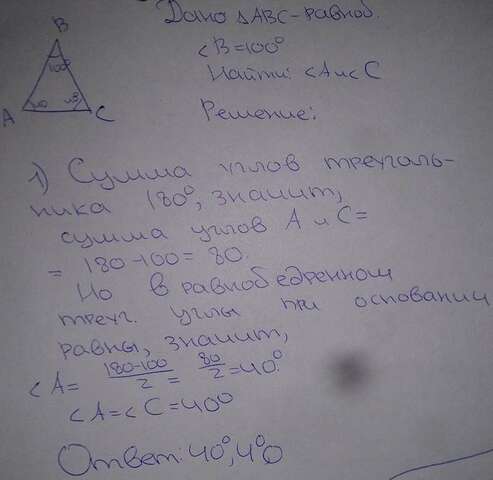 Дано ΔABC-равноб.
B
∠B=100°
100°
Найти: ∠A и ∠C
A
40
C
Решение:
1) Сумма углов треуголь-
ника 180°, значит,
сумма углов A и C=
= 180-100= 80.
Но в равнобедренном
треуг. углы при основании
равны, значит,
∠A= 180-100/2 = 80/2 =40°
∠A=∠C=40°
Ответ: 40°, 40